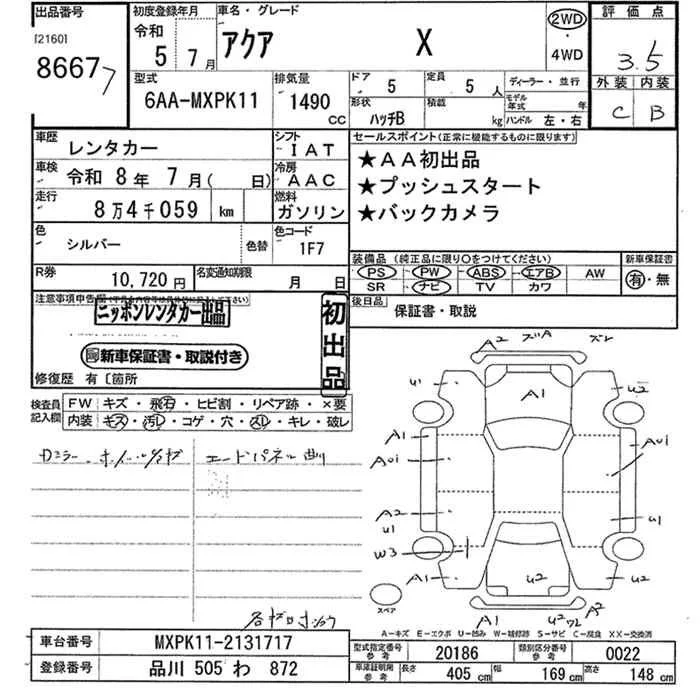 出品番号 初度登録年月 車名・グレード 評価点
[2160] 令和 5年 7月 アクア X 2WD・4WD 3.5
86677
型式 排気量 ドア 5 定員 5人 ディーラー・並行 外装 内装
6AA-MXPK11 1490 CC 形状 ハッチB 積載 kg モデル年式 年 ハンドル 左・右 C B
車歴 レンタカー シフト IAT セールスポイント(正常に機能するものに限ります)
車検 令和 8年 7月( 日) 冷房 AAC ★AA初出品
走行 8万4千059 km 燃料 ガソリン ★プッシュスタート
★バックカメラ
色 シルバー 色替 色コード 1F7
装備品(純正品に限り○をつけてください) 新車保証書
R券 10,720円 名変通知期限 月 日 PS PW ABS エアB AW 有・無
SR ナビ TV カワ
注意事項申告欄
ニッポンレンタカー出品 初出品 後日品 保証書・取説
新車保証書・取説付き
修復歴 有 [箇所
検査員記入欄 FW キズ・飛石・ヒビ割・リペア跡・×要
内装 キズ・汚レ・コゲ・穴・スレ・キレ・破レ
A2 ズA ズレ
u1 A1 u2
A1
A2
u1
W3
u1
A1 u2 u2
スペア
A1 u2 A2
A-キズ E-エクボ U-凹み W-補修跡 S-サビ C-腐食 XX-交換済
車台番号 MXPK11-2131717 型式指定番号 参考 20186 類別区分番号 参考 0022
登録番号 品川 505 わ 872 車庫証明用 参考 長さ 405 cm 幅 169 cm 高さ 148 cm